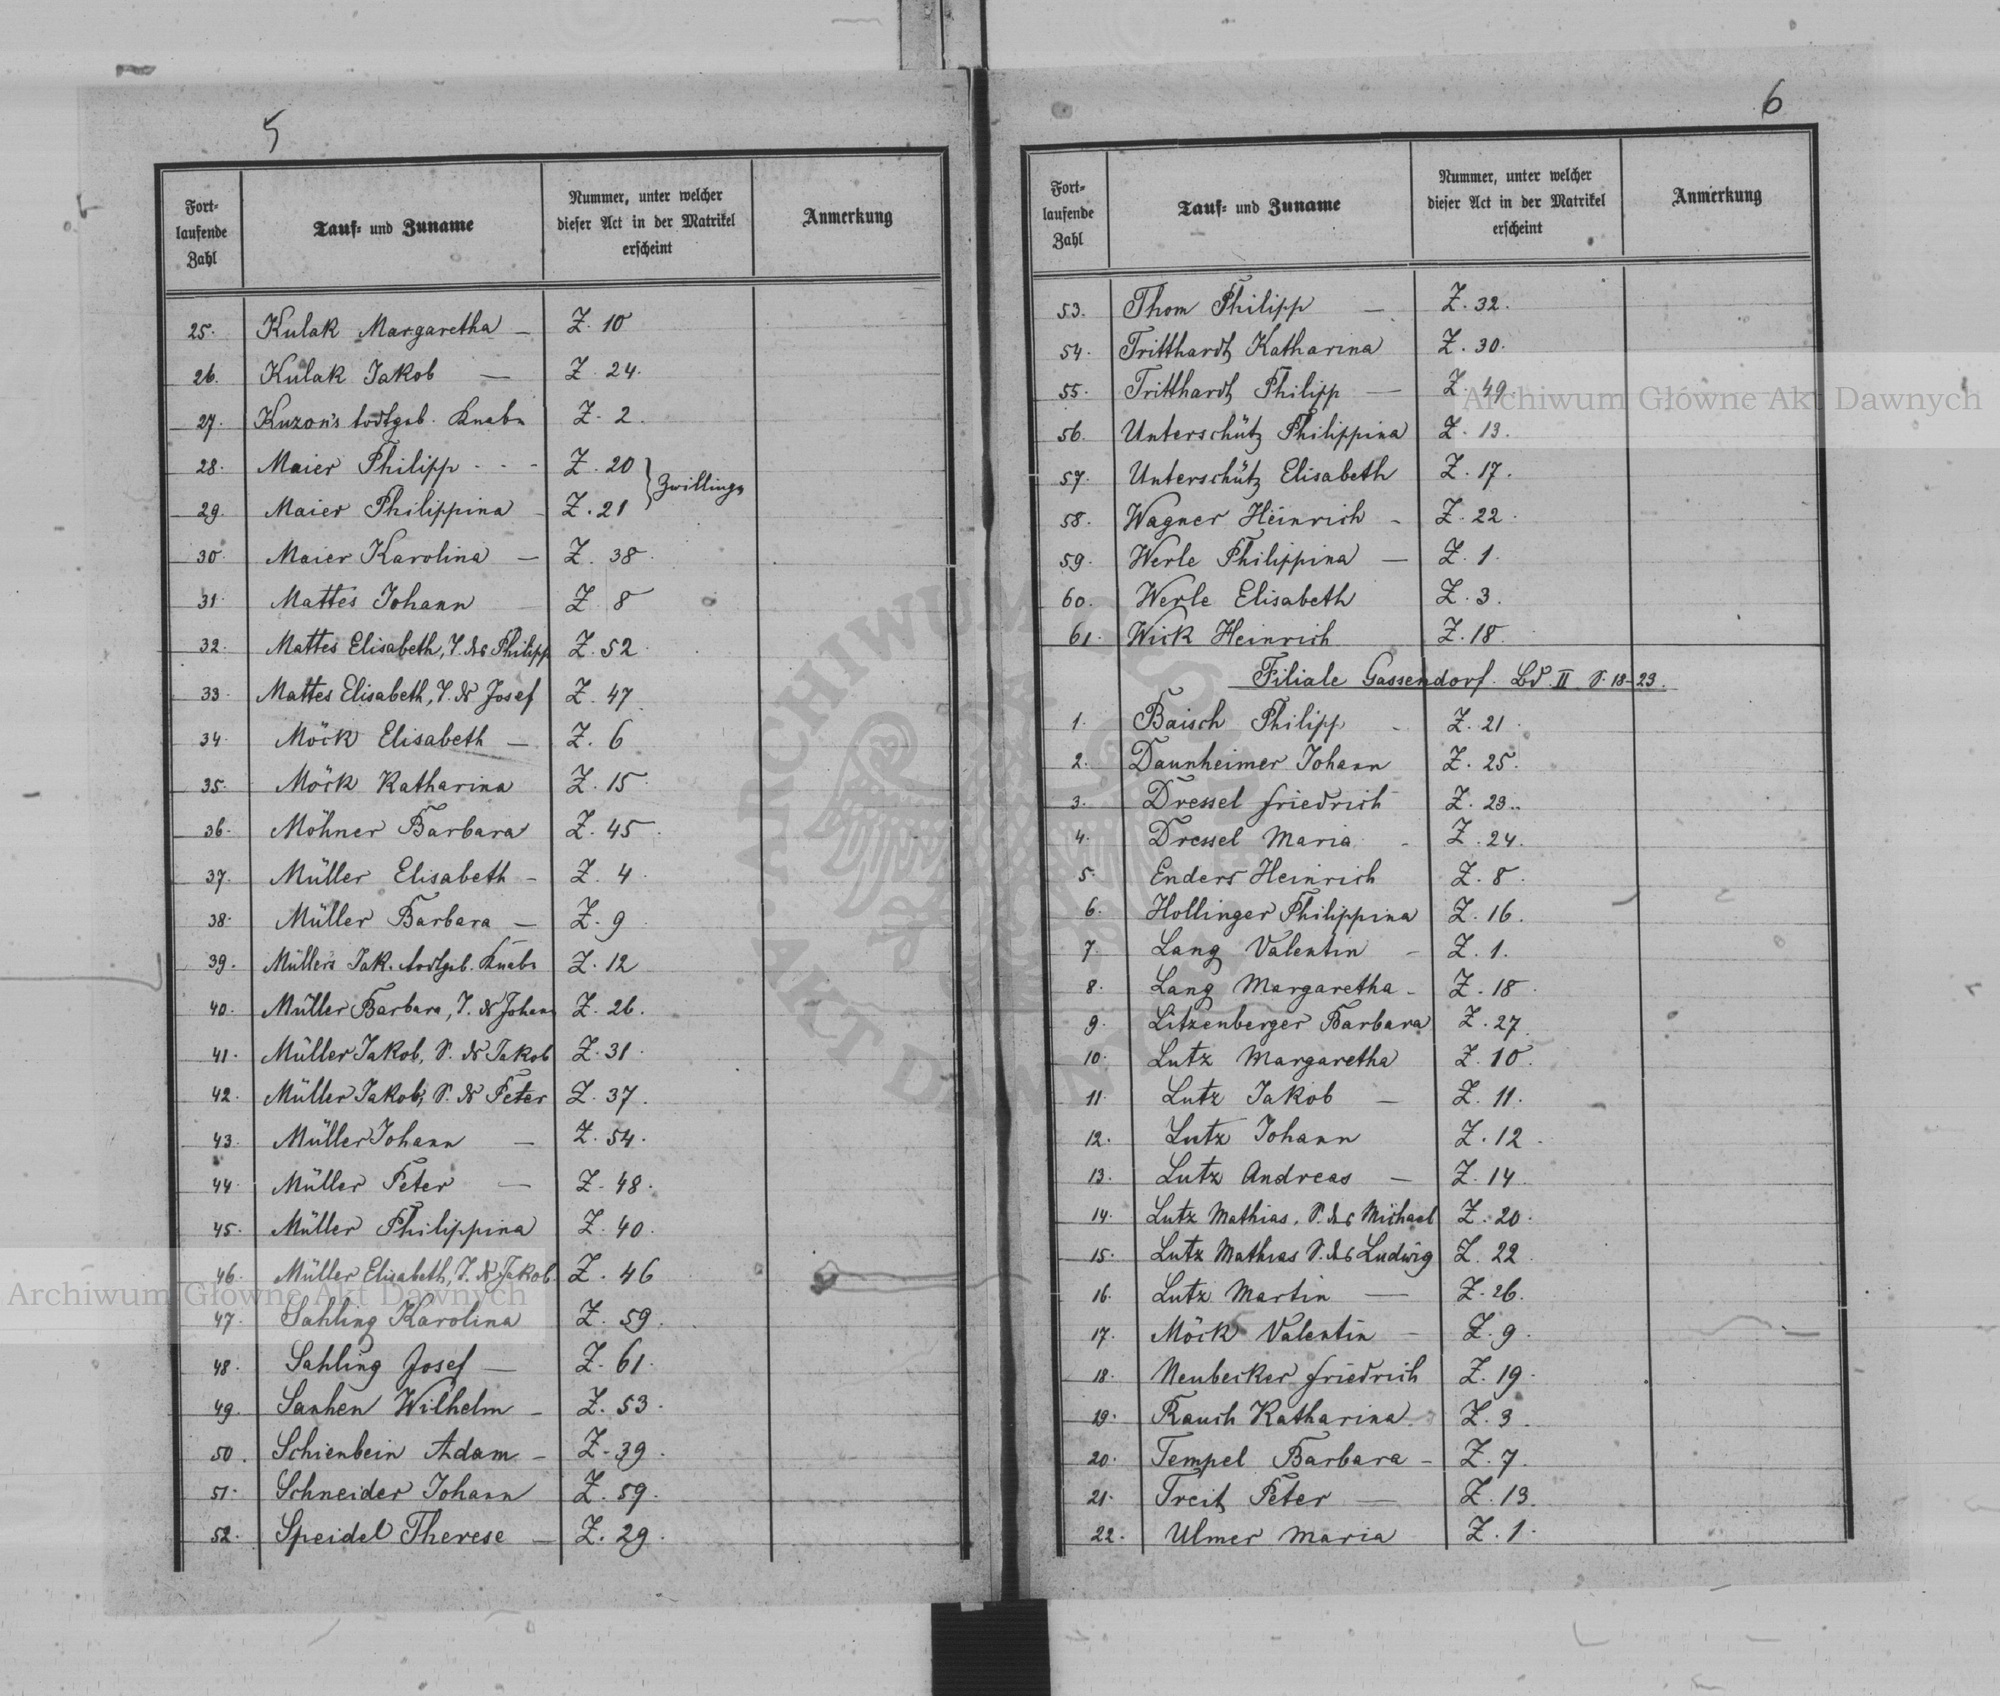 5
Fort-
laufende
Zahl
Tauf- und Zuname
Nummer, unter welcher
dieser Act in der Matrikel
erscheint
Anmerkung
25. Kulak Margaretha — Z. 10
26. Kulak Jakob — Z. 24.
27. Kuzon's todtgeb. Knabe Z. 2.
28. Maier Philipp - - - Z. 20
Zwillinge
29. Maier Philippina - Z. 21
30. Maier Karolina — Z. 38.
31. Mattes Johann Z. 8
32. Mattes Elisabeth, T. des Philipp Z. 52.
33. Mattes Elisabeth, T. d. Josef Z. 47.
34. Möck Elisabeth — Z. 6
35. Möck Katharina Z. 15.
36. Möhner Barbara Z. 45.
37. Müller Elisabeth - Z. 4
38. Müller Barbara — Z. 9
39. Müllers Jak. todtgeb. Knabe Z. 12
40. Müller Barbara, T. d. Johann Z. 26.
41. Müller Jakob, S. d. Jakob Z. 31.
42. Müller Jakob, S. d. Peter Z. 37.
43. Müller Johann — Z. 54.
44. Müller Peter — Z. 48.
45. Müller Philippina Z. 40.
46. Müller Elisabeth, T. d. Jakob Z. 46
47. Sahling Karolina Z. 59.
48. Sahling Josef — Z. 61.
49. Sanhen Wilhelm - Z. 53.
50. Schienbein Adam - Z. 39.
51. Schneider Johann Z. 59.
52. Speidel Therese — Z. 29.
6
Fort-
laufende
Zahl
Tauf- und Zuname
Nummer, unter welcher
dieser Act in der Matrikel
erscheint
Anmerkung
53. Thom Philipp — Z. 32.
54. Tritthardt Katharina Z. 30.
55. Tritthardt Philipp — Z. 49.
56. Unterschütz Philippina Z. 13.
57. Unterschütz Elisabeth Z. 17.
58. Wagner Heinrich - Z. 22.
59. Werle Philippina — Z. 1.
60. Werle Elisabeth Z. 3.
61. Wick Heinrich Z. 18.
Filiale Gassendorf. Bd. II S. 18-23.
1. Baisch Philipp - Z. 21.
2. Daunheimer Johann Z. 25.
3. Dressel Friedrich Z. 23.
4. Dressel Maria - Z. 24.
5. Enders Heinrich Z. 8.
6. Hollinger Philippina Z. 16.
7. Lang Valentin - Z. 1.
8. Lang Margaretha - Z. 18.
9. Litzenberger Barbara Z. 27.
10. Lutz Margaretha Z. 10.
11. Lutz Jakob — Z. 11.
12. Lutz Johann Z. 12.
13. Lutz Andreas — Z. 14.
14. Lutz Mathias, S. des Michael Z. 20.
15. Lutz Mathias S. des Ludwig Z. 22
16. Lutz Martin — Z. 26.
17. Möck Valentin - Z. 9.
18. Neubecker Friedrich Z. 19.
19. Rauch Katharina Z. 3.
20. Tempel Barbara - Z. 7.
21. Treitz Peter — Z. 13.
22. Ulmer Maria Z. 1.
Archiwum Główne Akt Dawnych
Archiwum Główne Akt Dawnych